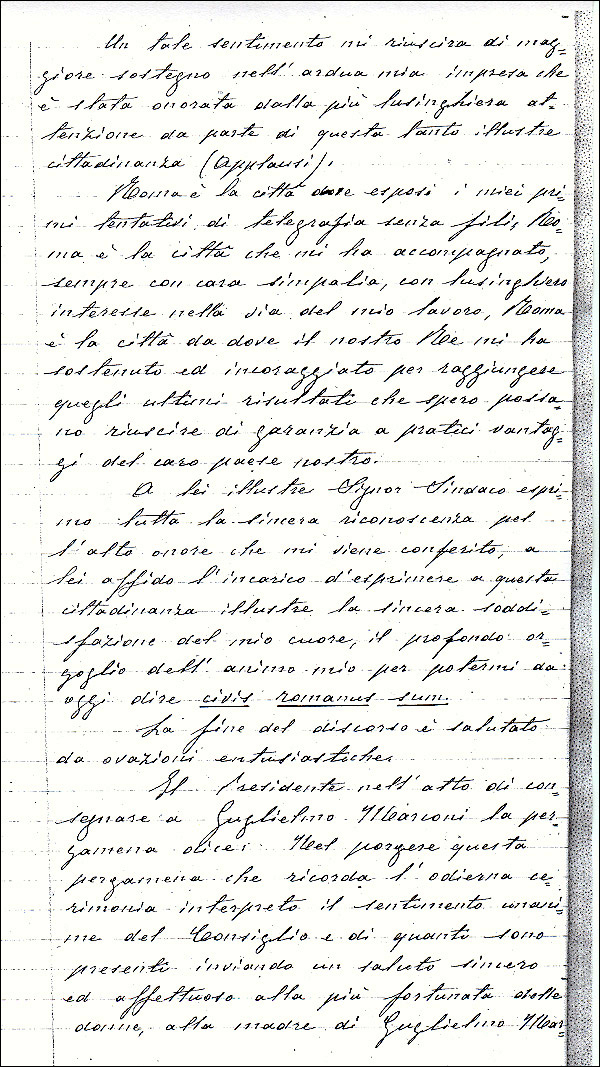 Un tale sentimento mi riuscirà di mag=
giore sostegno nell' ardua mia impresa che
è stata onorata dalla più lusinghiera at=
tenzione da parte di questa tanto illustre
cittadinanza (Applausi).
Roma è la città dove esposi i miei pri=
mi tentativi di telegrafia senza fili, Ro=
ma è la città che mi ha accompagnato,
sempre con cara simpatia, con lusinghiero
interesse nella via del mio lavoro, Roma
è la città da dove il nostro Re mi ha
sostenuto ed incoraggiato per raggiungere
quegli ultimi risultati che spero possa=
no riuscire di garanzia a pratici vantag=
gi del caro paese nostro.
A lei illustre Signor Sindaco espri=
mo tutta la sincera riconoscenza pel
l'alto onore che mi viene conferito, a
lei affido l'incarico d'esprimere a questa
cittadinanza illustre la sincera soddi=
sfazione del mio cuore, il profondo or=
goglio dell' animo mio per potermi da
oggi dire civis romanus sum.
La fine del discorso è salutato
da ovazioni entusiastiche.
Il Presidente nell' atto di con=
segnare a Guglielmo Marconi la per=
gamena dice: Nel porgere questa
pergamena che ricorda l' odierna ce=
rimonia interpreto il sentimento unani=
me del Consiglio e di quanti sono
presenti inviando un saluto sincero
ed affettuoso alla più fortunata delle
donne, alla madre di Guglielmo Mar=